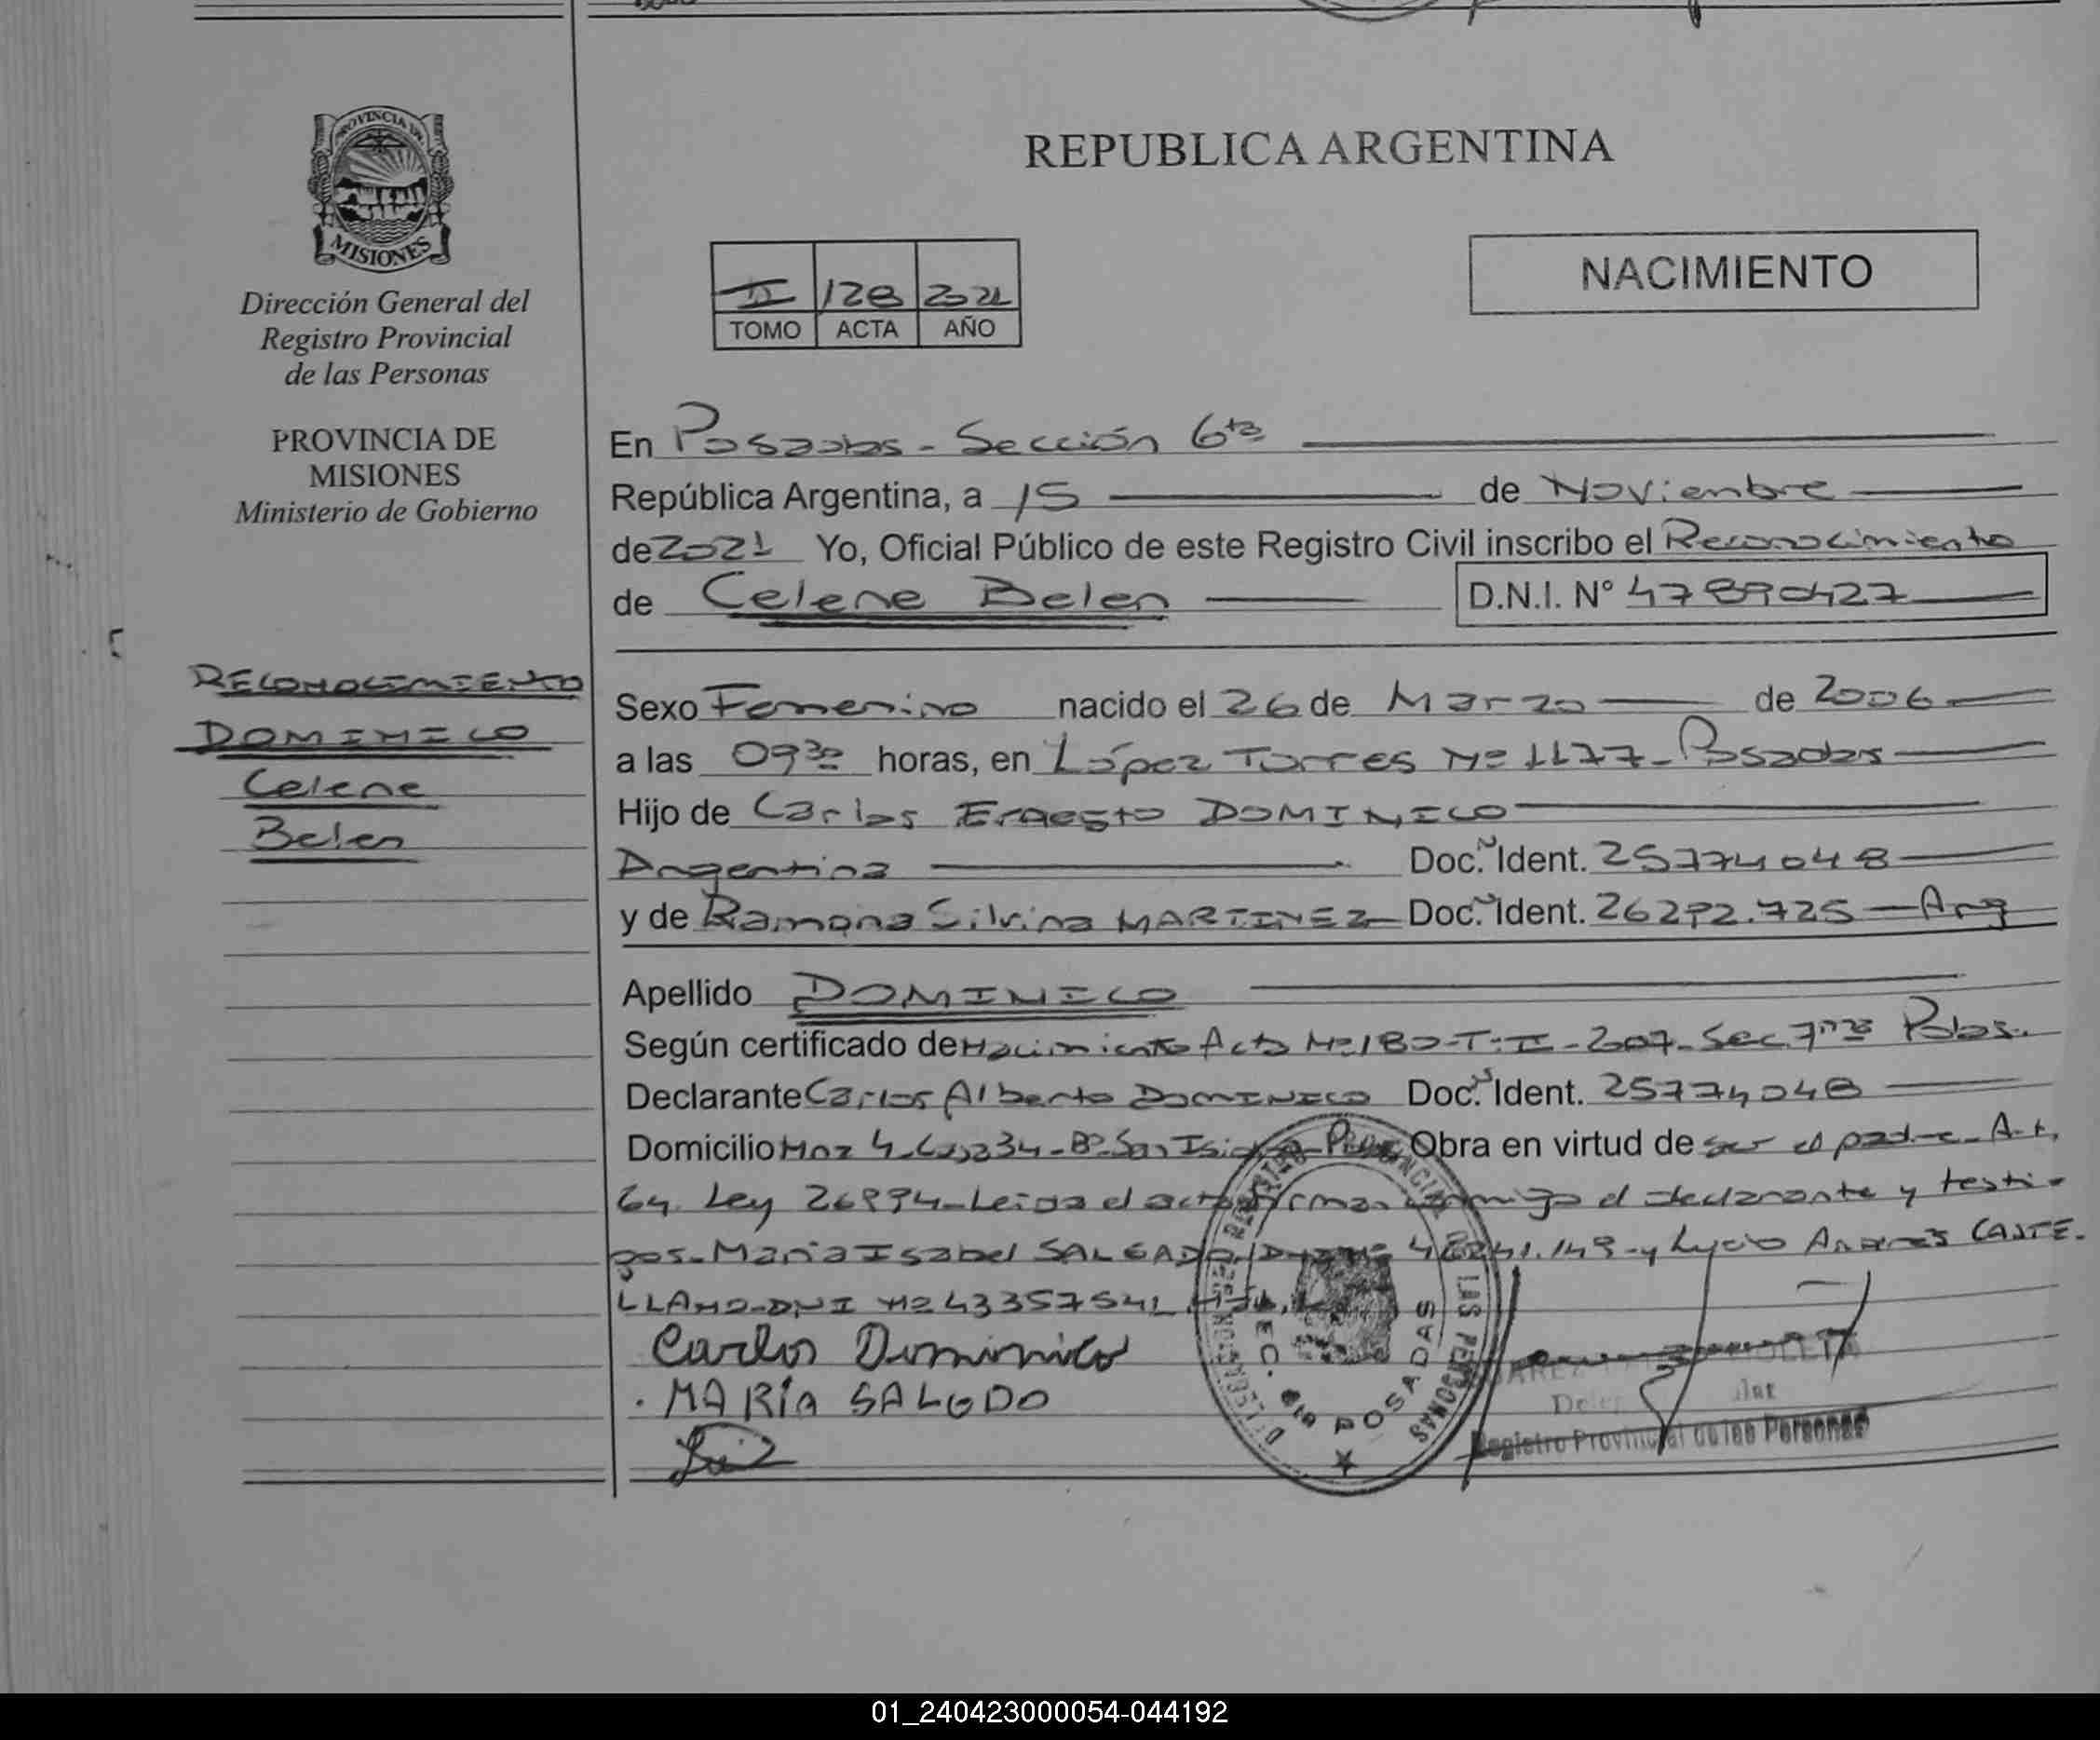 PROVINCIA DE
MISIONES
Dirección General del
Registro Provincial
de las Personas
PROVINCIA DE
MISIONES
Ministerio de Gobierno
RECONOCIMIENTO
DOMINICO
Celene
Belen
REPUBLICA ARGENTINA
NACIMIENTO
II 128 2021
TOMO ACTA AÑO
En Posadas - Sección 6ta
República Argentina, a 15 de Noviembre
de 2021 Yo, Oficial Público de este Registro Civil inscribo el Reconocimiento
de Celene Belen D.N.I. N° 47890427
Sexo Femenino nacido el 26 de Marzo de 2006
a las 09 30 horas, en López Torres Nº 1177 - Posadas
Hijo de Carlos Ernesto DOMINICO
Argentina Doc. Ident. 25774048
y de Ramona Silvina MARTINEZ Doc. Ident. 26292.725 - Arg
Apellido DOMINICO
Según certificado de Nacimiento Acta Nº 180 - T: II - 2007 - Sec. 7ma Pdas.
Declarante Carlos Alberto DOMINICO Doc. Ident. 25774048
Domicilio Mnz 4 - Casa 34 - Bº San Isidro - Obra en virtud de ser el padre - Art.
64 Ley 26994 - Leida el acta firman conmigo el declarante y testi-
gos - Maria Isabel SALGADO - y Lucio Andres CASTE-
LLANO - DNI Nº 43357541
Carlos Dominico
MARIA SALGDO
SEC. 6ta POSADAS
Registro Provincial de las Personas
01_240423000054-044192